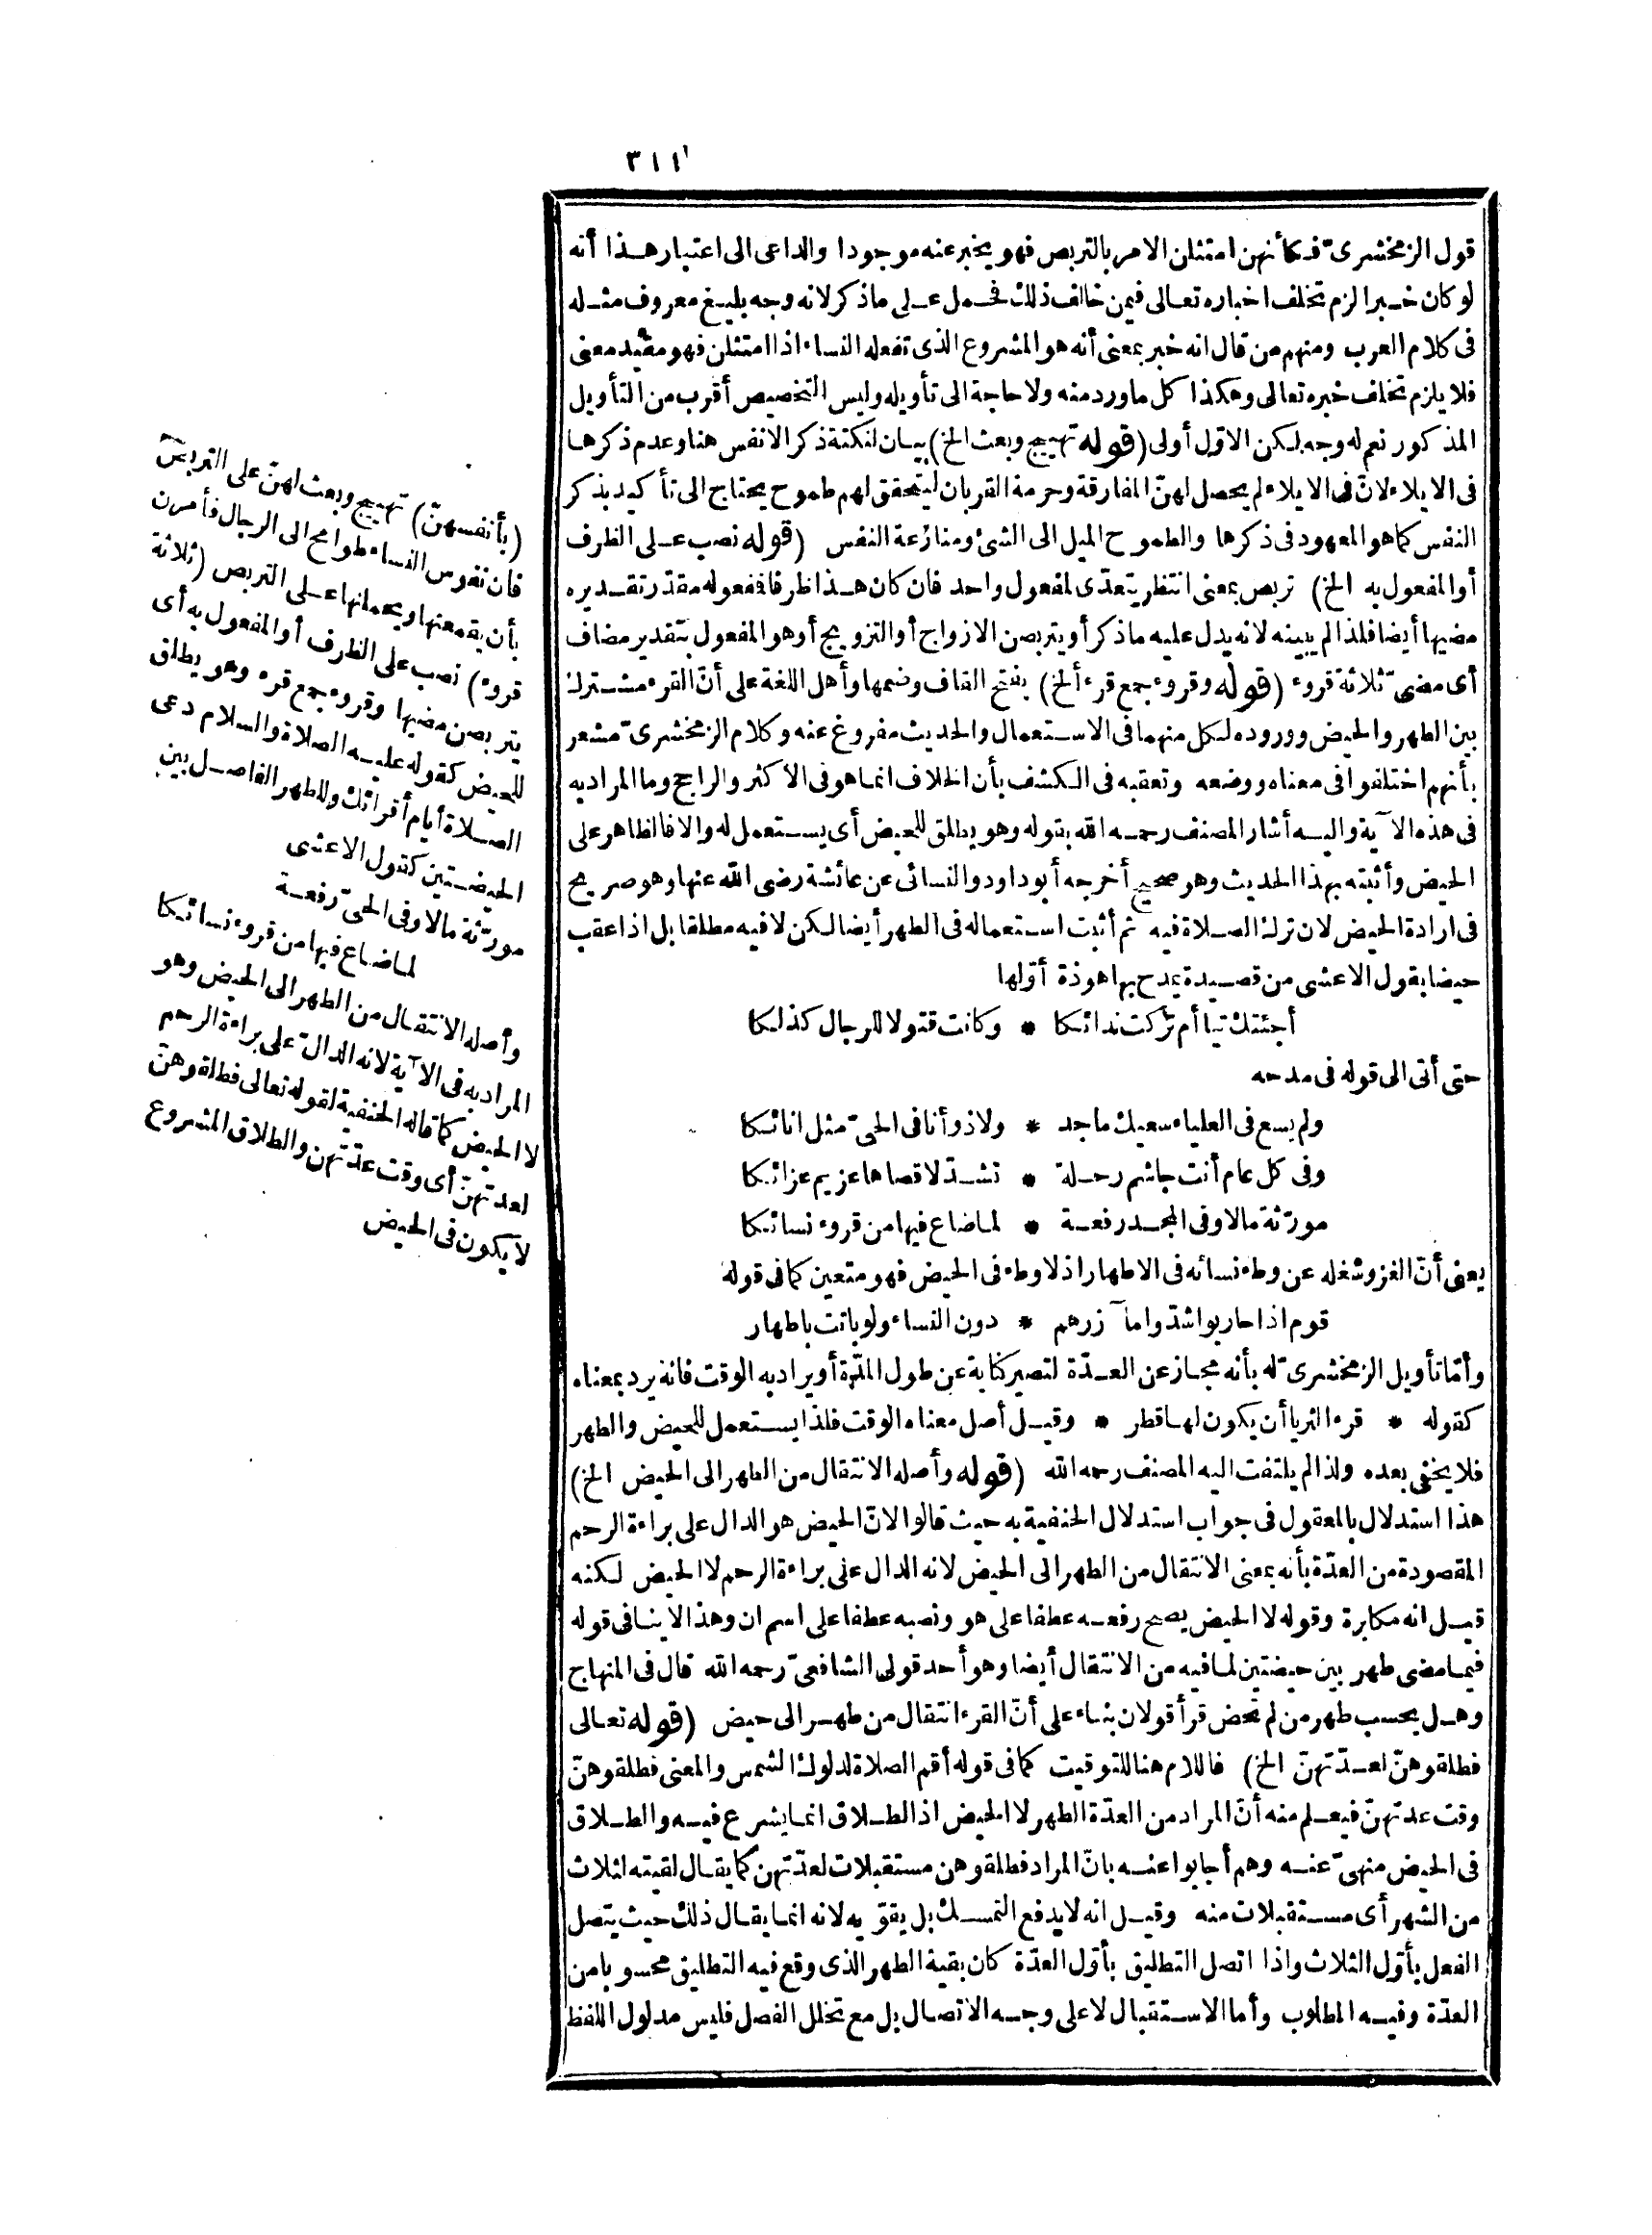 ٣١١
قول الزمخشرىّ فكأنهن امتثلن الامر بالتربص فهو يخبر عنه موجودا والداعى الى اعتبار هذا أنه
لو كان خبرا لزم تخلف اخباره تعالى فيمن خالف ذلك فحمل على ما ذكر لانه وجه بليغ معروف مثله
فى كلام العرب ومنهم من قال انه خبر بمعنى أنه هو المشروع الذى تفعله النساء اذا امتثلن فهو مقيد معنى
فلا يلزم تخلف خبره تعالى وهكذا كل ما ورد منه ولا حاجة الى تأويله وليس التخصيص أقرب من التأويل
المذكور نعم له وجه لكن الاوّل أولى (قوله تهييج وبعث الخ) بيان لنكتة ذكر الانفس هنا وعدم ذكرها
فى الايلاء لانّ فى الايلاء لم يحصل لهنّ المفارقة وحرمة القربان ليتحقق لهم طموح يحتاج الى تأكيد بذكر
النفس كما هو المعهود فى ذكرها والطموح الميل الى الشئ ومنازعة النفس (قوله نصب على الظرف
أو المفعول به الخ) تربص بمعنى انتظر يتعدّى لمفعول واحد فان كان هذا ظرفا فمفعوله مقدّر تقديره
مضيها أيضا فلذا لم يبينه لانه يدل عليه ما ذكر أو يتربصن الازواج أو التزويج أو هو المفعول بتقدير مضاف
أى مضىّ ثلاثة قروء (قوله وقروء جمع قرء الخ) بفتح القاف وضمها وأهل اللغة على أنّ القرء مشترك
بين الطهر والحيض ووروده لكل منهما فى الاستعمال والحديث مفروغ عنه وكلام الزمخشرىّ مشعر
بأنهم اختلفوا فى معناه ووضعه وتعقبه فى الكشف بأن الخلاف انما هو فى الاكثر والراجح وما المراد به
فى هذه الآية واليه أشار المصنف رحمه الله بقوله وهو يطلق للحيض أى يستعمل له والا فالظاهر على
الحيض وأثبته بهذا الحديث وهو صحيح أخرجه أبو داود والنسائى عن عائشة رضى الله عنها وهو صريح
فى ارادة الحيض لان ترك الصلاة فيه ثم أثبت استعماله فى الطهر أيضا لكن لا فيه مطلقا بل اذا عقب
حيضا بقول الاعشى من قصيدة يمدح بها هوذة أوّلها
أجئتك تيا أم تركت ندائكا * وكانت قتولا للرجال كذلكا
حتى أتى الى قوله فى مدحه
ولم يسع فى العلياء سعيك ماجد * ولا ذو أنا فى الحىّ مثل انائكا
وفى كل عام أنت جاشم رحلة * تشدّ لاقصاها عزيم عزائكا
مورّثة مالا وفى المجد رفعة * لما ضاع فيها من قروء نسائكا
يعنى أنّ الغزو شغله عن وطء نسائه فى الاطهار اذ لا وطء فى الحيض فهو متعين كما فى قوله
قوم اذا حاربوا شدّوا مآزرهم * دون النساء ولو باتت باطهار
وأمّا تأويل الزمخشرىّ له بأنه مجاز عن العدّة لتصير كناية عن طول المدّة أو يراد به الوقت فانه يرد بمعناه
كقوله * قرء الثريا أن يكون لها قطر * وقيل أصل معناه الوقت فلذا يستعمل للحيض والطهر
فلا يخفى بعده ولذا لم يلتفت اليه المصنف رحمه الله (قوله وأصله الانتقال من الطهر الى الحيض الخ)
هذا استدلال بالمعقول فى جواب استدلال الحنفية به حيث قالوا لانّ الحيض هو الدال على براءة الرحم
المقصودة من العدّة بأنه بمعنى الانتقال من الطهر الى الحيض لانه الدال على براءة الرحم لا الحيض لكنه
قيل انه مكابرة وقوله لا الحيض يصح رفعه عطفا على هو ونصبه عطفا على اسم ان وهذا لا ينافى قوله
فيما مضى طهر بين حيضتين لما فيه من الانتقال أيضا وهو أحد قولى الشافعىّ رحمه الله قال فى المنهاج
وهل يحسب طهر من لم تحض قرأ قولان بناء على أنّ القرء انتقال من طهر الى حيض (قوله تعالى
فطلقوهنّ لعدّتهنّ الخ) فاللام هنا للتوقيت كما فى قوله أقم الصلاة لدلوك الشمس والمعنى فطلقوهنّ
وقت عدتهنّ فيعلم منه أنّ المراد من العدّة الطهر لا الحيض اذ الطلاق انما يشرع فيه والطلاق
فى الحيض منهىّ عنه وهم أجابوا عنه بانّ المراد فطلقوهن مستقبلات لعدّتهن كما يقال لقيته لثلاث
من الشهر أى مستقبلات منه وقيل انه لا يدفع التمسك بل يقوّيه لانه انما يقال ذلك حيث يتصل
الفعل بأوّل الثلاث واذا اتصل التطليق بأوّل العدّة كان بقية الطهر الذى وقع فيه التطليق محسوبا من
العدّة وفيه المطلوب وأما الاستقبال لا على وجه الاتصال بل مع تخلل الفصل فليس مدلول اللفظ
(بأنفسهنّ) تهييج وبعث لهنّ على التربص
فان نفوس النساء طوامح الى الرجال فأمرن
بأن يقمعنها ويحملنها على التربص (ثلاثة
قروء) نصب على الظرف أو المفعول به أى
يتربصن مضيها وقروء جمع قرء وهو يطلق
للحيض كقوله عليه الصلاة والسلام دعى
الصلاة أيام أقرائك وللطهر الفاصل بين
الحيضتين كقول الاعشى
مورّثة مالا وفى الحىّ رفعة
لما ضاع فيها من قروء نسائكا
وأصله الانتقال من الطهر الى الحيض وهو
المراد به فى الآية لانه الدالّ على براءة الرحم
لا الحيض كما قاله الحنفية لقوله تعالى فطلقوهنّ
لعدتهنّ أى وقت عدّتهن والطلاق المشروع
لا يكون فى الحيض